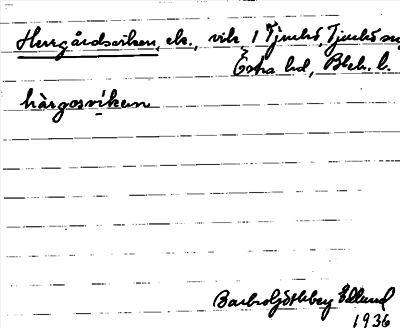 Herrgårdsviken, ek., vik i Tjurkö, Tjurkö sn,
Östra hd, Blek. l.
hàrgosvíken
Barbro Götheberg Edlund
1936